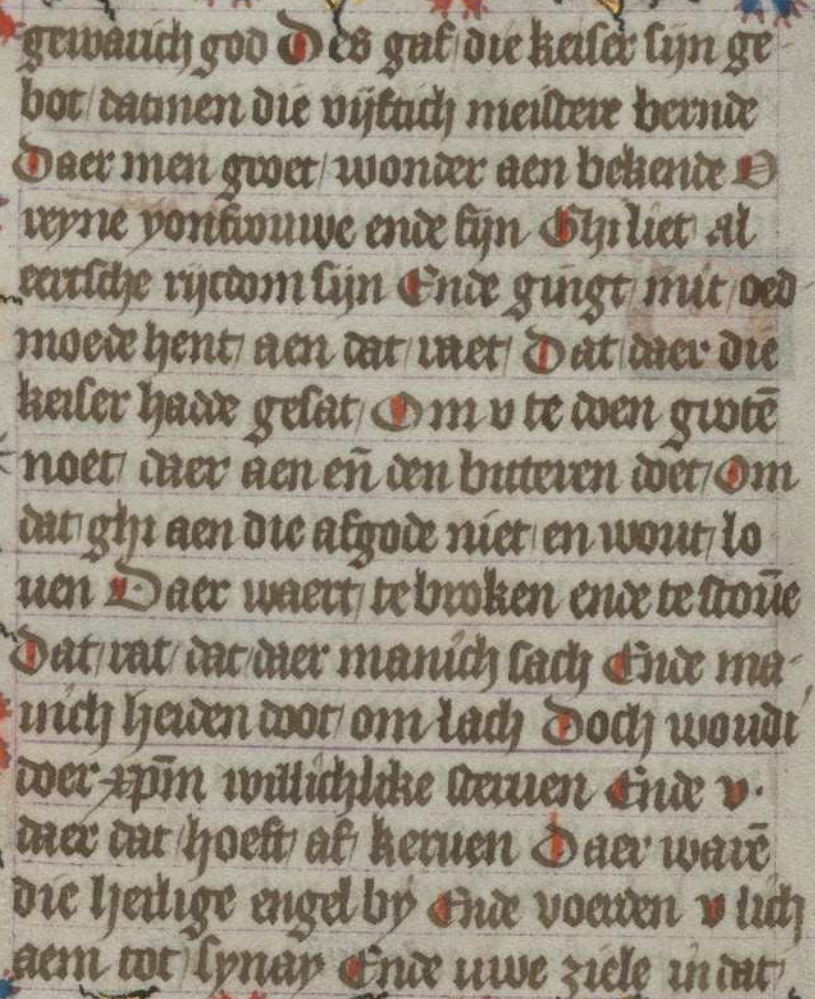 gewarich god Des gaf die keiser sijn ge
bot datmen die vijftich meistere bernde
Daer men groet wonder aen bekende O
reyne yonfrouwe ende fijn Ghi liet al
eertsche rijcdom sijn Ende gingt mit oed
moede hent aen dat raet Dat daer die
keiser hadde gesat Om v te doen grotē
noet daer aen eñ den bitteren doet Om
dat ghi aen die afgode niet en wout lo
uen Daer waert te broken ende te stoūe
Dat rat dat daer manich sach Ende ma
nich heiden doot om lach Doch woudi
doer xpm̄ willichlike steruen Ende v
daer dat hoeft af keruen Daer warē
die heilige engel by Ende voerden v lich
aem tot synay Ende uwe ziele in dat